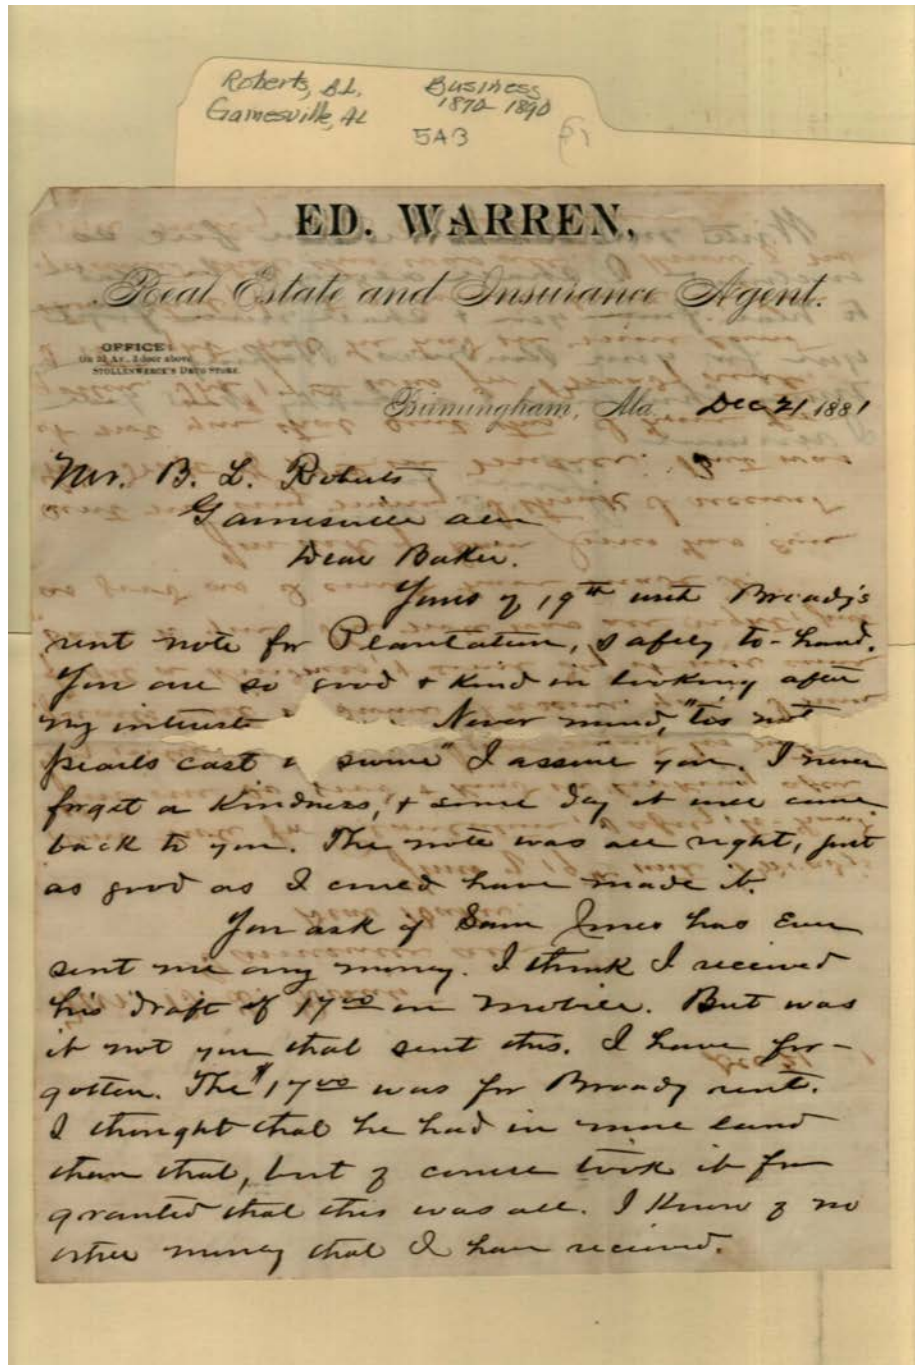 Roberts, B.L. Business
Gainesville, AL 1870-1890
5AB
ED. WARREN,
Real Estate and Insurance Agent.
OFFICE:
On 2d Av., 2 door above
STOLLENWERCK'S DRUG STORE.
Birmingham, Ala. Dec 21 1881
Mr. B. L. Roberts
Gainesville Ala
Dear Baker.
Yours of 19th with Broady's
rent note for Plantation, safely to-hand.
You are so good & kind in looking after
my interests Never mind, "tis not
pearls cast swine" I assure you. I never
forget a kindness, & some day it will come
back to you. The note was all right, just
as good as I could have made it.
You ask if Sam Jones has Ever
sent me any money. I think I received
his draft of 17 00 in Mobile. But was
it not you that sent this. I have for-
gotten. The $17 00 was for Broady rent.
I thought that he had in more land
than that, but of course took it for
granted that this was all. I Know of no
other money that I have received.